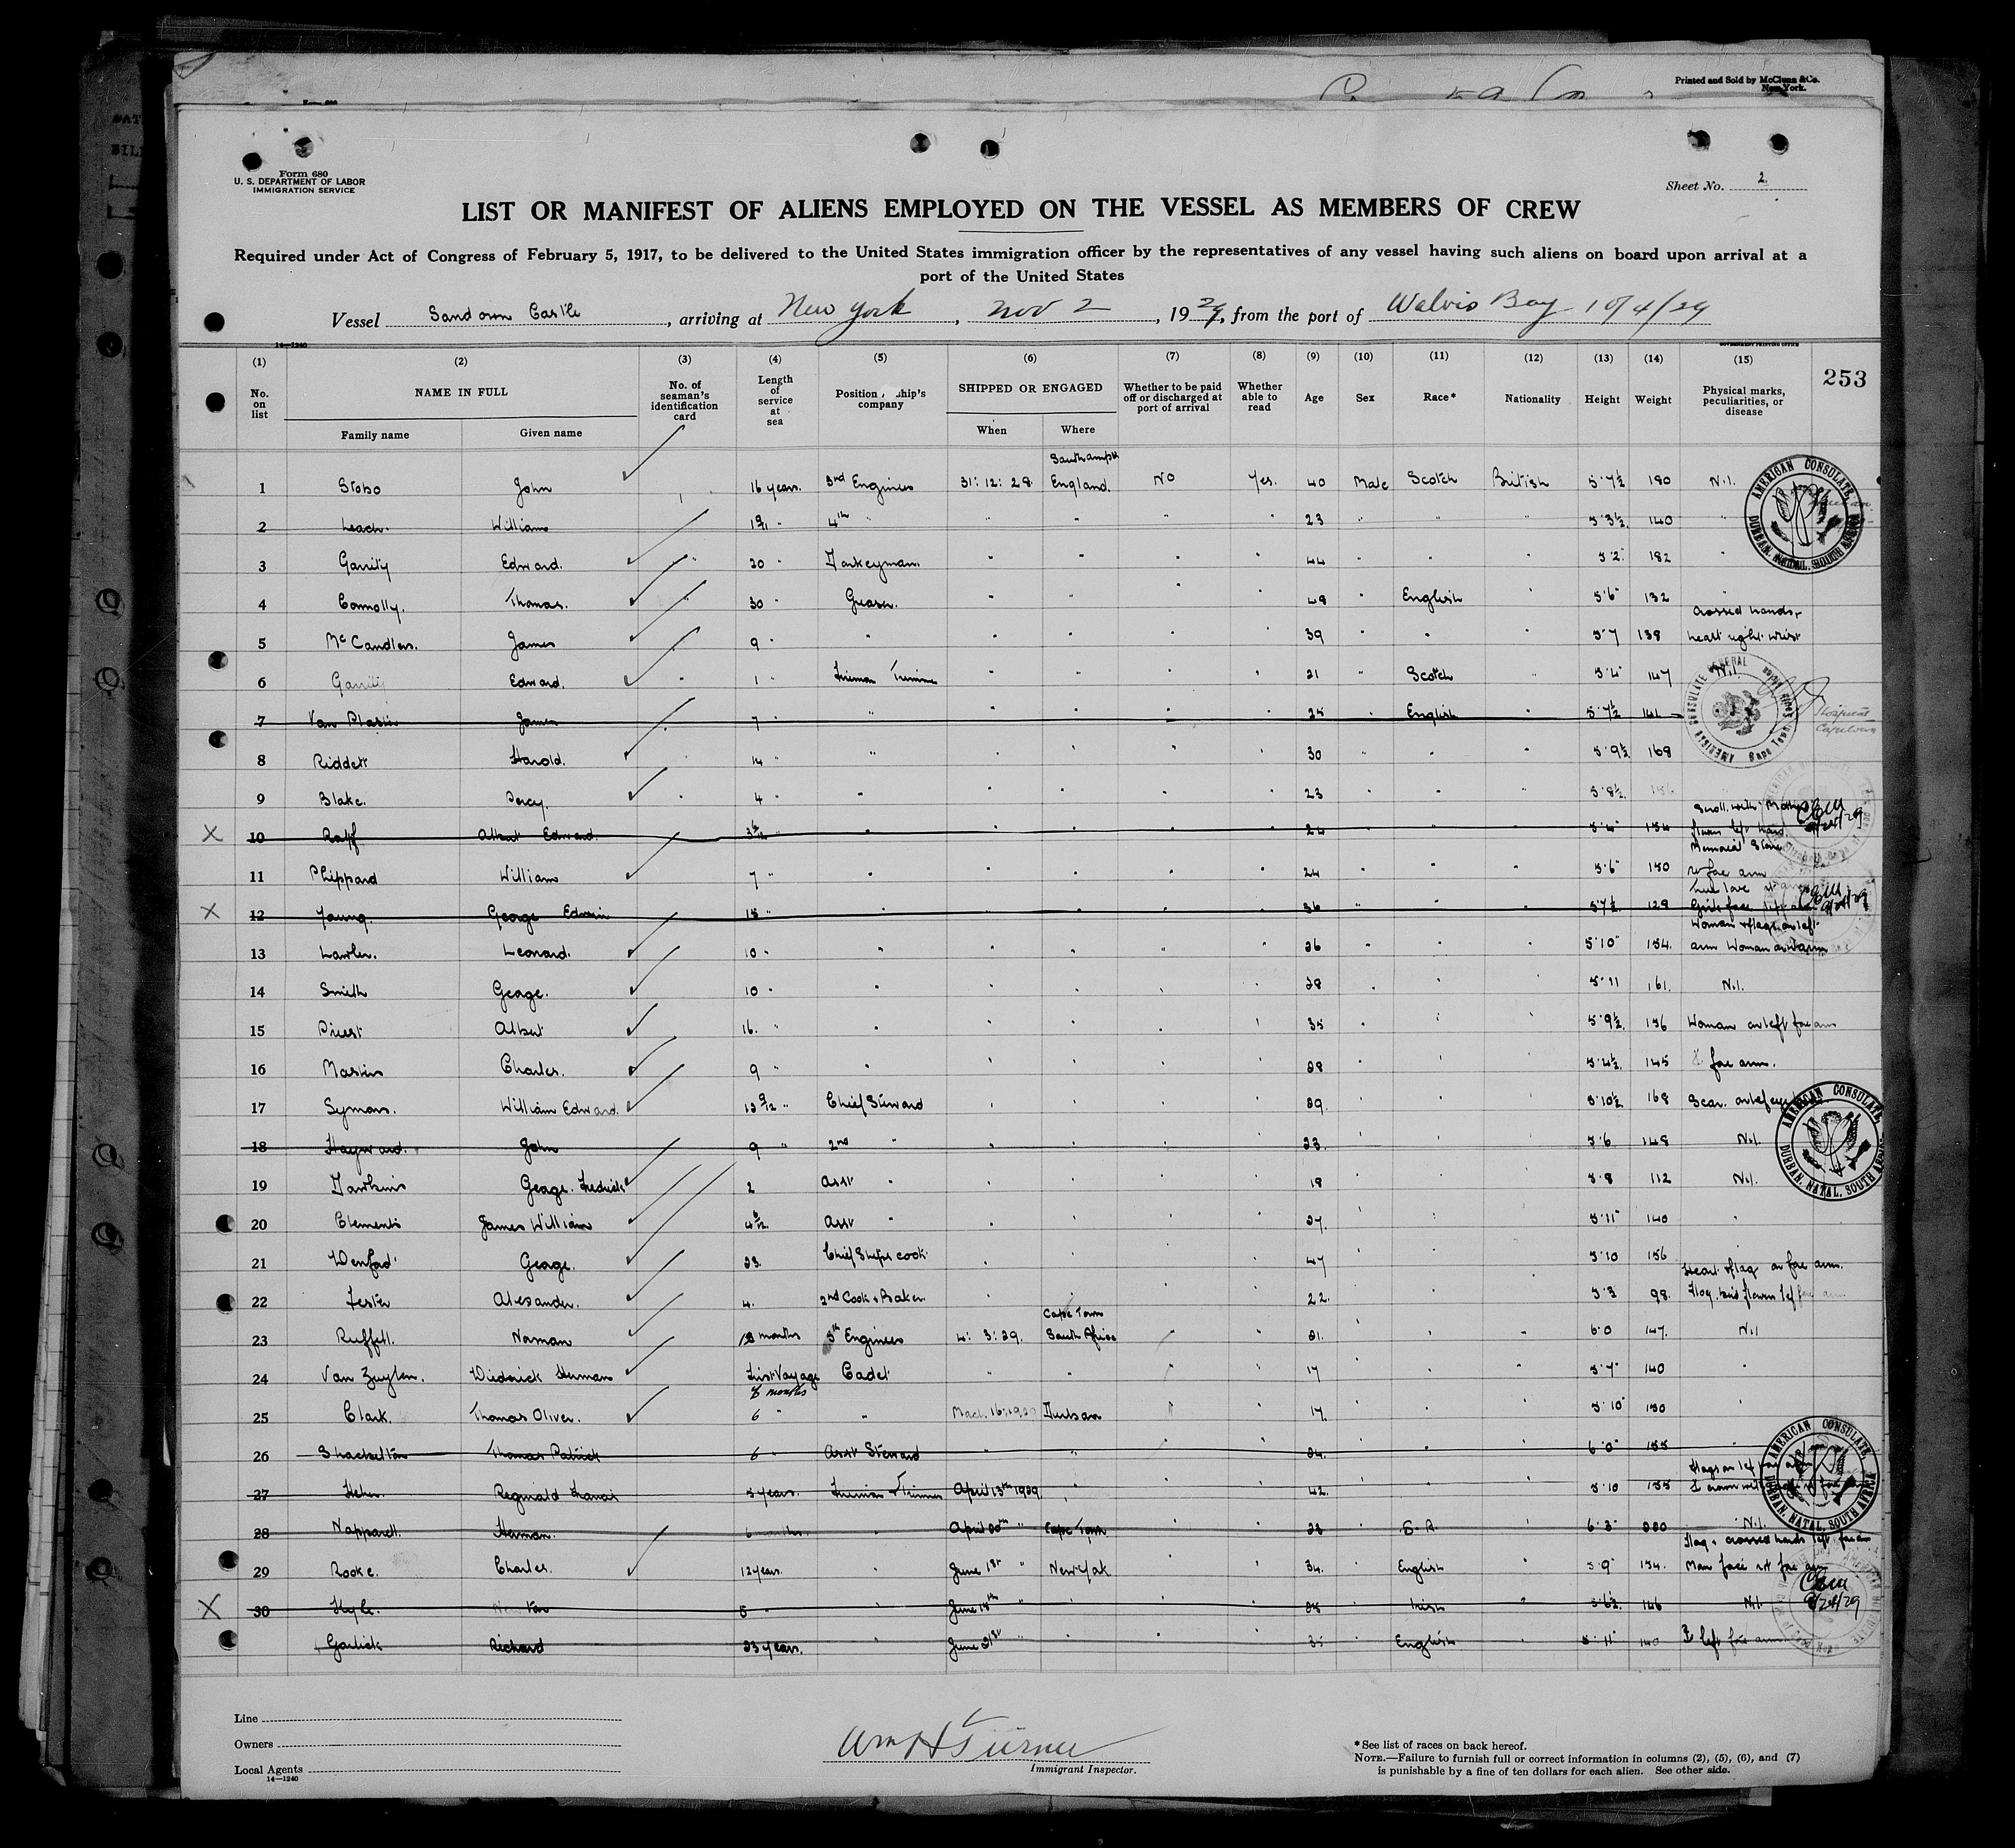 Printed and Sold by McClunn & Co.
New York.
Form 680
U. S. DEPARTMENT OF LABOR
IMMIGRATION SERVICE
Sheet No. 2
LIST OR MANIFEST OF ALIENS EMPLOYED ON THE VESSEL AS MEMBERS OF CREW
Required under Act of Congress of February 5, 1917, to be delivered to the United States immigration officer by the representatives of any vessel having such aliens on board upon arrival at a
port of the United States
Vessel Sandown Castle, arriving at New York, Nov 2, 1929, from the port of Walvis Bay 10/4/29
14—1240
GOVERNMENT PRINTING OFFICE
(1) (2) (3) (4) (5) (6) (7) (8) (9) (10) (11) (12) (13) (14) (15)
No. on list NAME IN FULL No. of seaman's identification card Length of service at sea Position ship's company SHIPPED OR ENGAGED Whether to be paid off or discharged at port of arrival Whether able to read Age Sex Race* Nationality Height Weight Physical marks, peculiarities, or disease 253
Family name Given name When Where
1 Stobo John 16 years. 3rd Engineer 31:12:28. Southampton England. No Yes. 40 Male Scotch British 5'7½ 180 Nil.
2 Leach. William 4th " " " " " 23 " " " 5'3½ 140 "
3 Garrity Edward. " 20 " Donkeyman. " " " " 44 " " " 5'2" 182 "
4 Connolly. Thomas. " 30 " Greaser. " " " 48 " English " 5'6" 132 "
5 McCandless. James 9 " " " " " " 39 " " " 5'7 138 Crossed hands & heart right wrist
6 Garrity Edward. " 1 " Fireman Trimmer " " " " 21 " Scotch " 5'4" 147 Nil.
7 James 7 " " " " " " 25 " English " 5'7½ Hospital Capetown
8 Riddett Harold. 14 " " " " " " 30 " " " 5'9½ 168
9 Blake. Percy. " 4 " " " " " " 23 " " " 5'8½
X 10 Rapf Albert Edward. " " " " " " 24 " " " 5'4" 154 Scroll with Mother flower left hand. 9/24/29
11 Phippard William 7 " " " " " " 24 " " " 5'6" 150 Memorial Stone rt fore arm
X 12 Young. George Edwin 15 " " " " " " 36 " " " 5'7½ 129 True love Girls face 9/24/29
13 Lawler. Leonard. 10 " " " " " 26 " " " 5'10" 154. Woman & flags on left arm Woman on rt arm
14 Smith George. 10 " " " " " " 28 " " " 5'11 161. Nil.
15 Priest Albert 16. " " " " " " 35 " " " 5'9½ 156 Woman on left fore arm
16 Martin Charles. 9 " " " " " " 28 " " " 5'4½ 145 fore arm.
17 Symons. William Edward. 13 9/12 " Chief Steward " " " " 39. " " " 5'10½ 168 Scar.
18 Hayward. John 9 " 2nd " " " " " 23. " " " 5'6 148 Nil.
19 Hawkins George. Fredrick 2 Asst " " " " " 18 " " " 5'8 112 Nil.
20 Clements James William 4 6/12 Asst " " " " " 27. " " " 5'11" 140 "
21 George. 23. Chief Ships cook " " " " 47 " " " 5'10 156
22 Lester Alexander. 4. 2nd Cook & Baker. " " " " 22. " " " 5'3 98. Heart & flag on fore arm.
23 Ruffell. Norman 18 months 5th Engineer 4:3:29. Cape Town South Africa " " 21. " " " 6'0 147. Nil
24 Van Zuylen. Diederick Herman First Voyage 8 months Cadet " " " " 17 " " " 5'7" 140 "
25 Clark. Thomas Oliver. 6 " " March 16:1929 Durban " " 17. " " " 5'10" 150 "
26 Shackelton Thomas Patrick 6 " Asst Steward " " " " 24. " " " 6'0" 155 "
27 Reginald Francis 5 years. Fireman & Trimmer April 13th 1929 " " " 42. " " " 5'10 155
28 Napparell. Herman. 6 months " April 20th " Cape Town " " 28 " S. A. " 6'3" Nil.
29 Rooke. Charles. 12 years. " June 1st " New York " " 34. " English " 5'9" 154. Flag & crossed hands left fore arm Man face rt fore arm
X 30 Kyle. 5 " " June 18th " " " " " Irish " 5'6½ 146 Nil. 9/24/29
Garlick Richard 23 years. " June 21st " " " " 35 " English " 5'11" 140 left fore arm
AMERICAN CONSULATE, DURBAN, NATAL, SOUTH AFRICA
AMERICAN CONSULATE GENERAL Cape Town
AMERICAN CONSULATE, DURBAN, NATAL, SOUTH AFRICA
AMERICAN CONSULATE, DURBAN, NATAL, SOUTH AFRICA
Line
Owners
Local Agents
14—1240
Wm H Turner
Immigrant Inspector.
*See list of races on back hereof.
NOTE.—Failure to furnish full or correct information in columns (2), (5), (6), and (7)
is punishable by a fine of ten dollars for each alien. See other side.